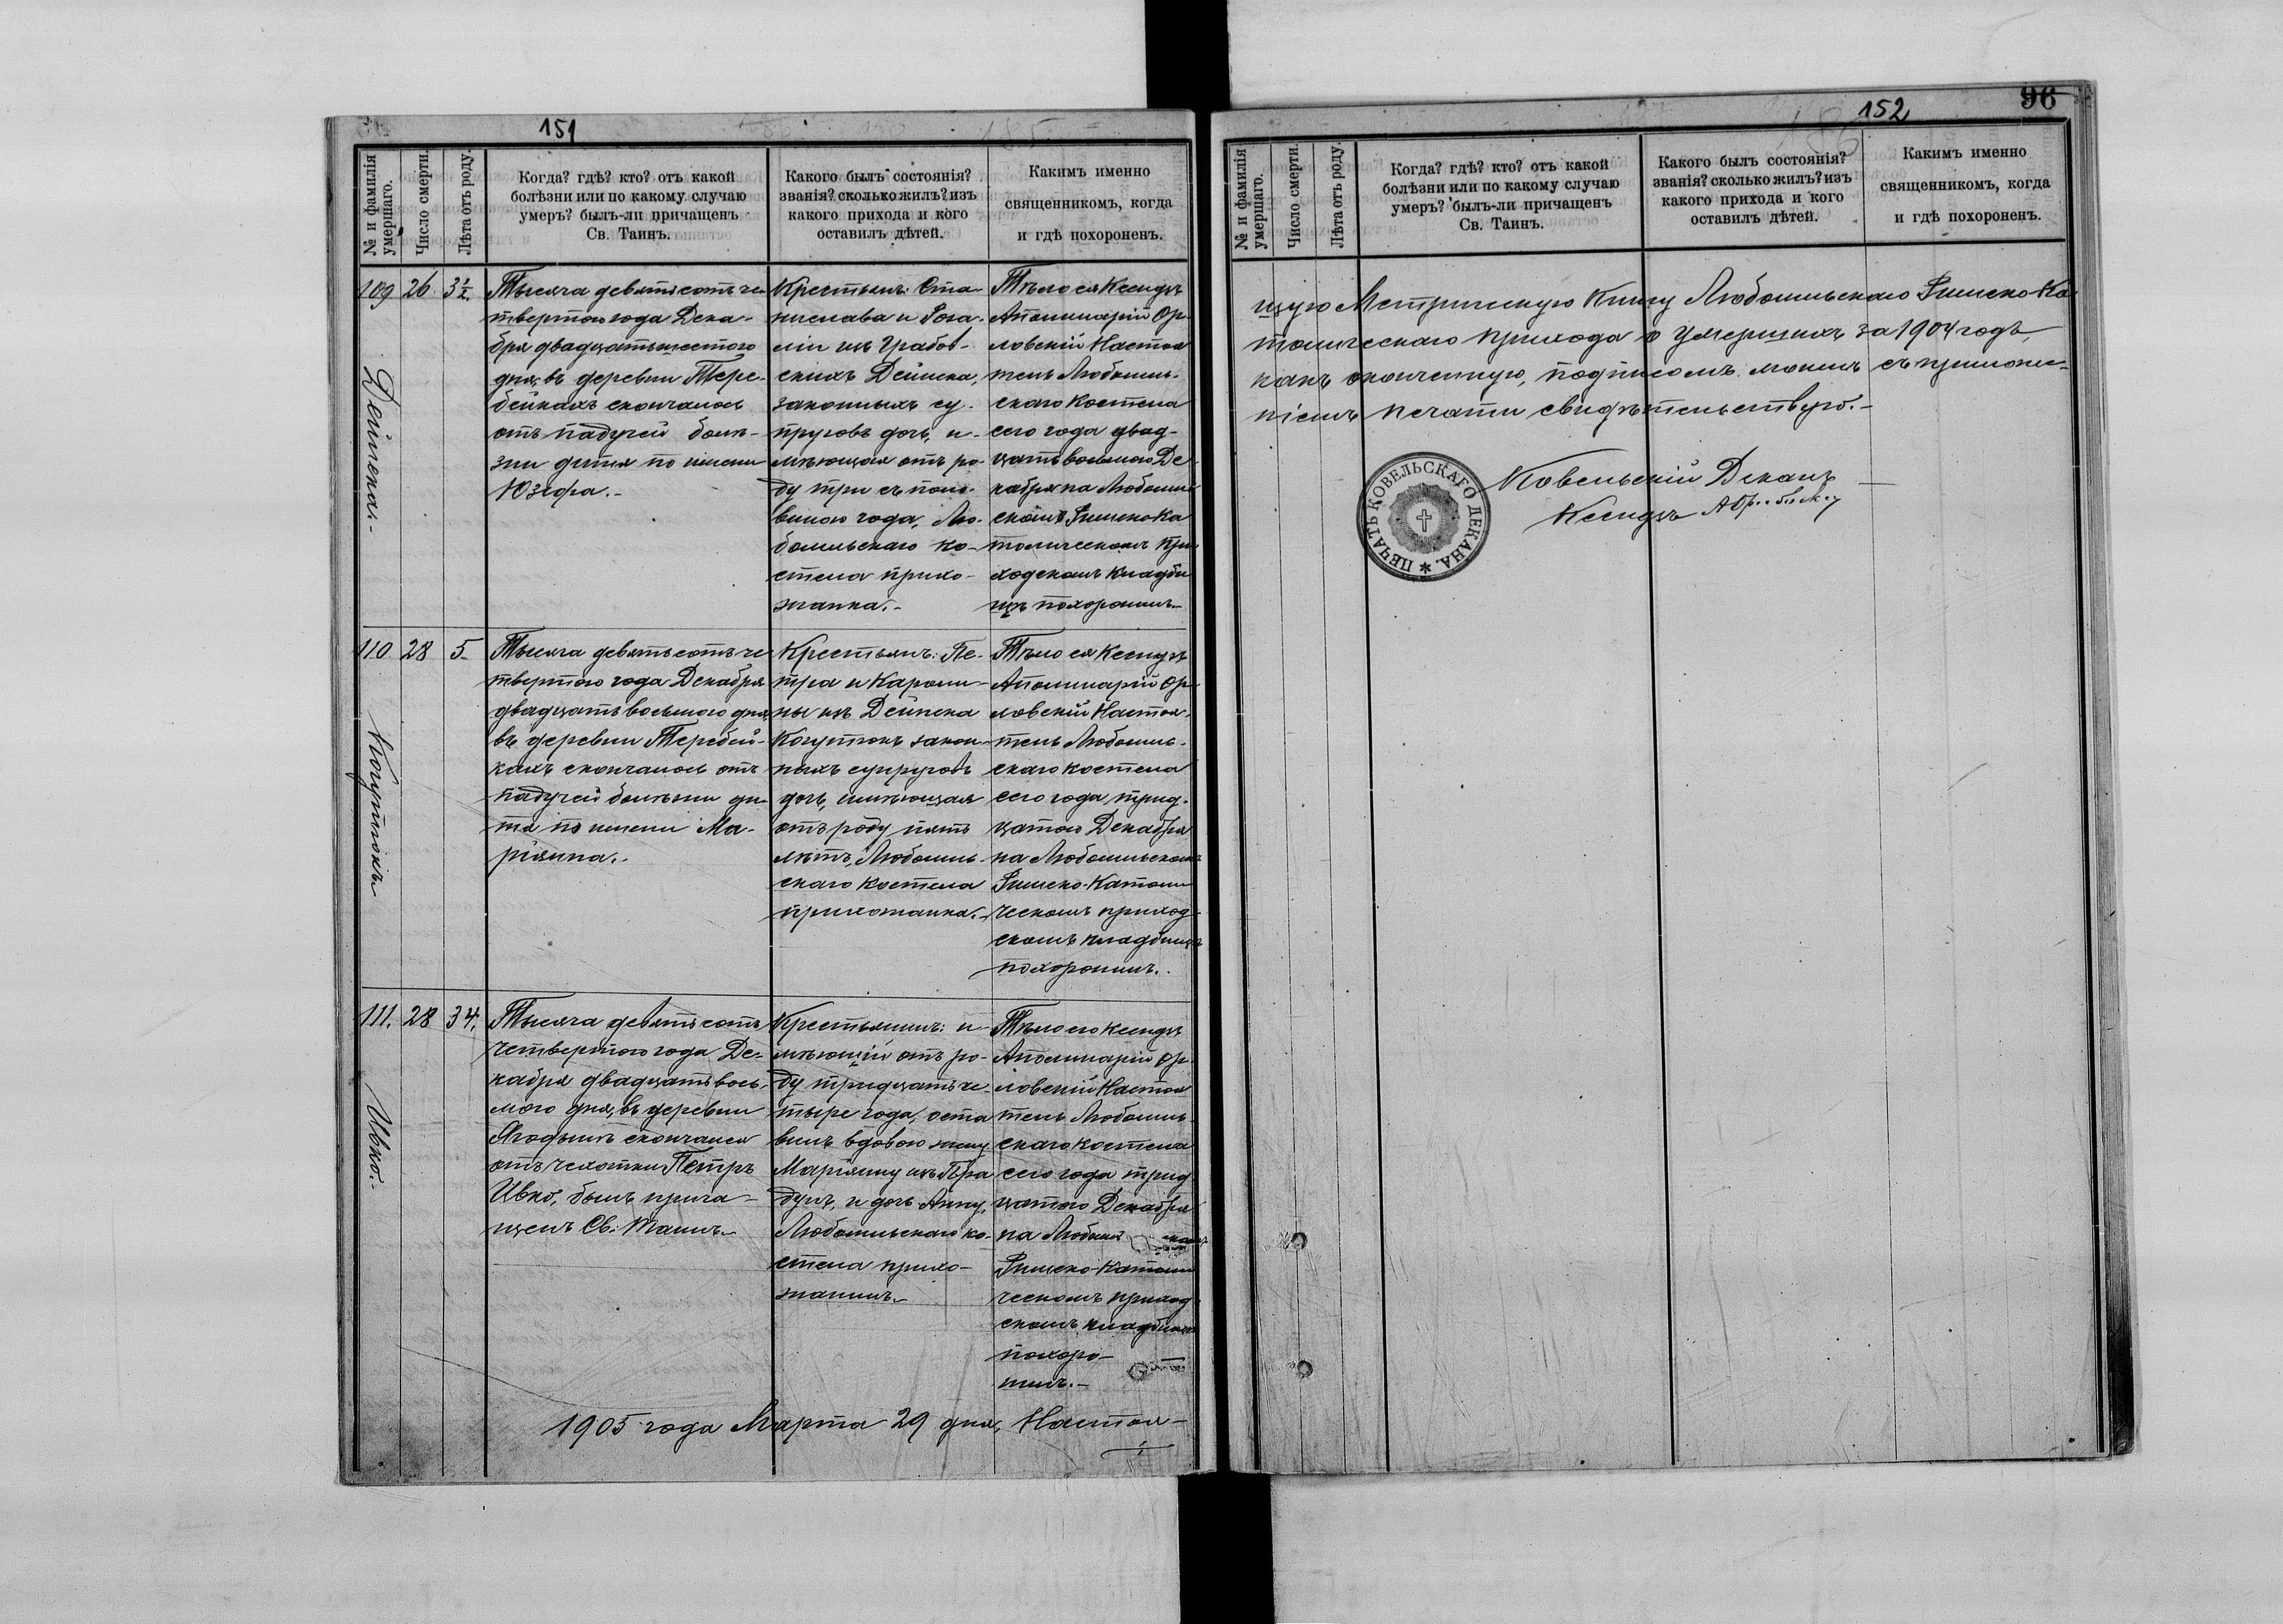 151
№ и фамилія умершаго.
Число смерти.
Лѣта отъ роду.
Когда? гдѣ? кто? отъ какой
болѣзни или по какому случаю
умеръ? былъ-ли причащенъ
Св. Таинъ.
Какого былъ состоянія?
званія? сколько жилъ? изъ
какого прихода и кого
оставилъ дѣтей.
Какимъ именно
священникомъ, когда
и гдѣ похороненъ.
109 26 3½
Дейнека.-
Тысяча девятьсотъ че-
твертого года Дека-
бря двадцатьшестого
дня, въ деревни Тере-
бейкахъ скончалось
отъ падучей болѣ-
зни дитя по имени
Юзефа.-
Крестьянъ: Ста-
нислава и Роза-
ліи изъ Грабов-
скихъ Дейнека,
законныхъ су-
пруговъ дочь, и-
мѣющая отъ ро-
ду три съ поло-
виною года, Лю-
бомльскаго ко-
стела прихо-
жанка.-
Тѣло ея Ксендзъ
Аполинарій Ор-
ловскій Настоя
тель Любомль-
скаго костела
сего года двад-
цать восьмого Де
кабря на Любомль
скомъ Римско Ка
толическомъ При
ходскомъ кладби
щѣ похоронилъ.-
110 28 5.
Когутюкъ
Тысяча девятьсотъ че
твертого года Декабря
двадцать восьмого дня,
въ деревни Теребей-
кахъ скончалось отъ
падучей болѣзни ди-
тя по имени Ма-
ріянна.-
Крестьянъ: Пе-
тра и Кароли-
ны изъ Дейнека
Когутюкъ закон-
ныхъ супруговъ
дочь, имѣющая
отъ роду пять
лѣтъ, Любомль-
скаго костела
прихожанка.-
Тѣло ея Ксендзъ
Аполинарій Ор-
ловскій Настоя-
тель Любомль-
скаго костела
сего года трид-
цатого Декабря
на Любомльскомъ
Римско-Католи
ческомъ приход
скомъ кладбищѣ
похоронилъ.
111. 28 34.
Ивко.-
Тысяча девятьсотъ
четвертого года Де-
кабря двадцать вось-
мого дня, въ деревни
Ягодынѣ скончался
отъ чахотки Петръ
Ивко, былъ прича-
щенъ Св. Таинъ.-
Крестьянинъ: и-
мѣющій отъ ро-
ду тридцать че-
тыре года, оста
вилъ вдовою жену
Маріянну изъ
и дочь Анну,
Любомльскаго ко-
стела прихо-
жанинъ.-
Тѣло его Ксендзъ
Аполинарій Ор-
ловскій Настоя
тель Любомль-
скаго костела
сего года трид
цатого Декабря
на Любомл скомъ
Римско-Католи
ческомъ приход
скомъ кладбищѣ
похоро-
нилъ.-
1905 года Марта 29 дня, Настоя-
152
96
№ и фамилія умершаго.
Число смерти.
Лѣта отъ роду.
Когда? гдѣ? кто? отъ какой
болѣзни или по какому случаю
умеръ? былъ-ли причащенъ
Св. Таинъ.
Какого былъ состоянія?
званія? сколько жилъ? изъ
какого прихода и кого
оставилъ дѣтей.
Какимъ именно
священникомъ, когда
и гдѣ похороненъ.
щую Метрическую Книгу Любомльскаго Римско-Ка
толическаго прихода о умершихъ за 1904 годъ,
какъ оконченную, подписомъ моимъ съ приложе-
ніемъ печати свидѣтельствую.-
Ковельскій Деканъ
Ксендзъ
ПЕЧАТЬ КОВЕЛЬСКАГО ДЕКАНА.